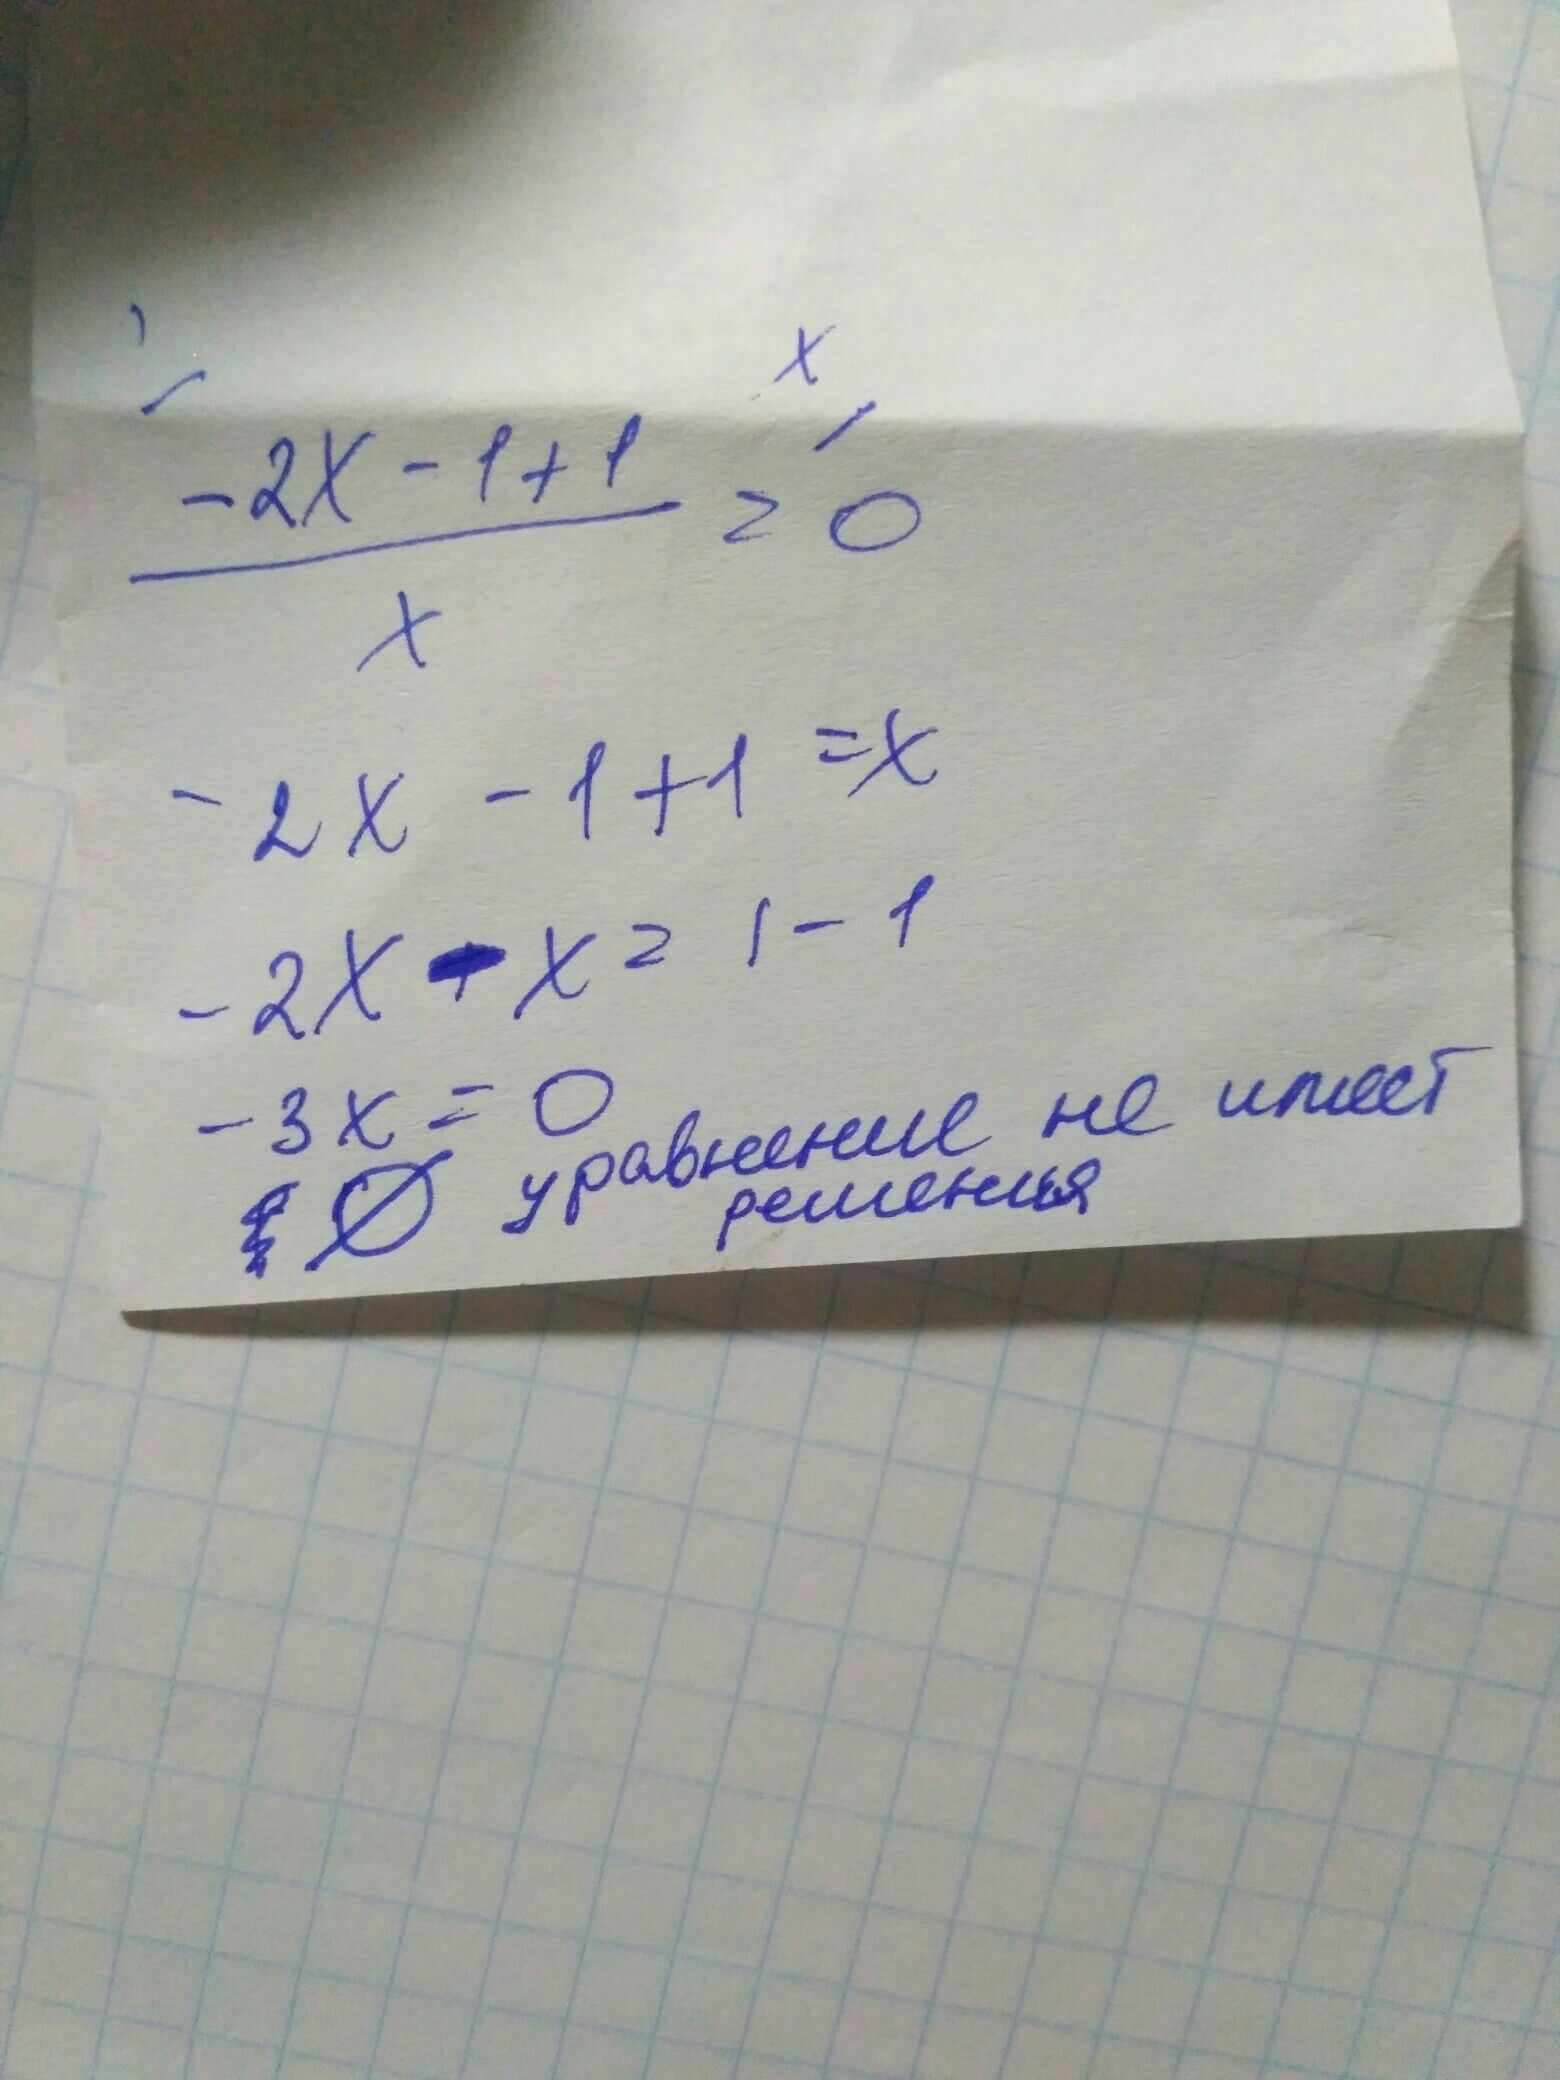 x
-2x-1+1 = 0
x
-2x -1+1 =x
-2x - x = 1-1
-3x = 0
∅ уравнение не имеет
решения